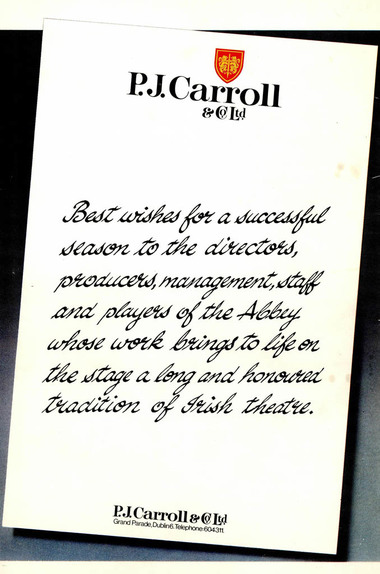 P.J.Carroll
& Co Ltd
Best wishes for a successful
season to the directors,
producers, management, staff
and players of the Abbey
whose work brings to life on
the stage a long and honoured
tradition of Irish theatre.
P.J.Carroll & Co Ltd
Grand Parade, Dublin 6. Telephone: 604311.